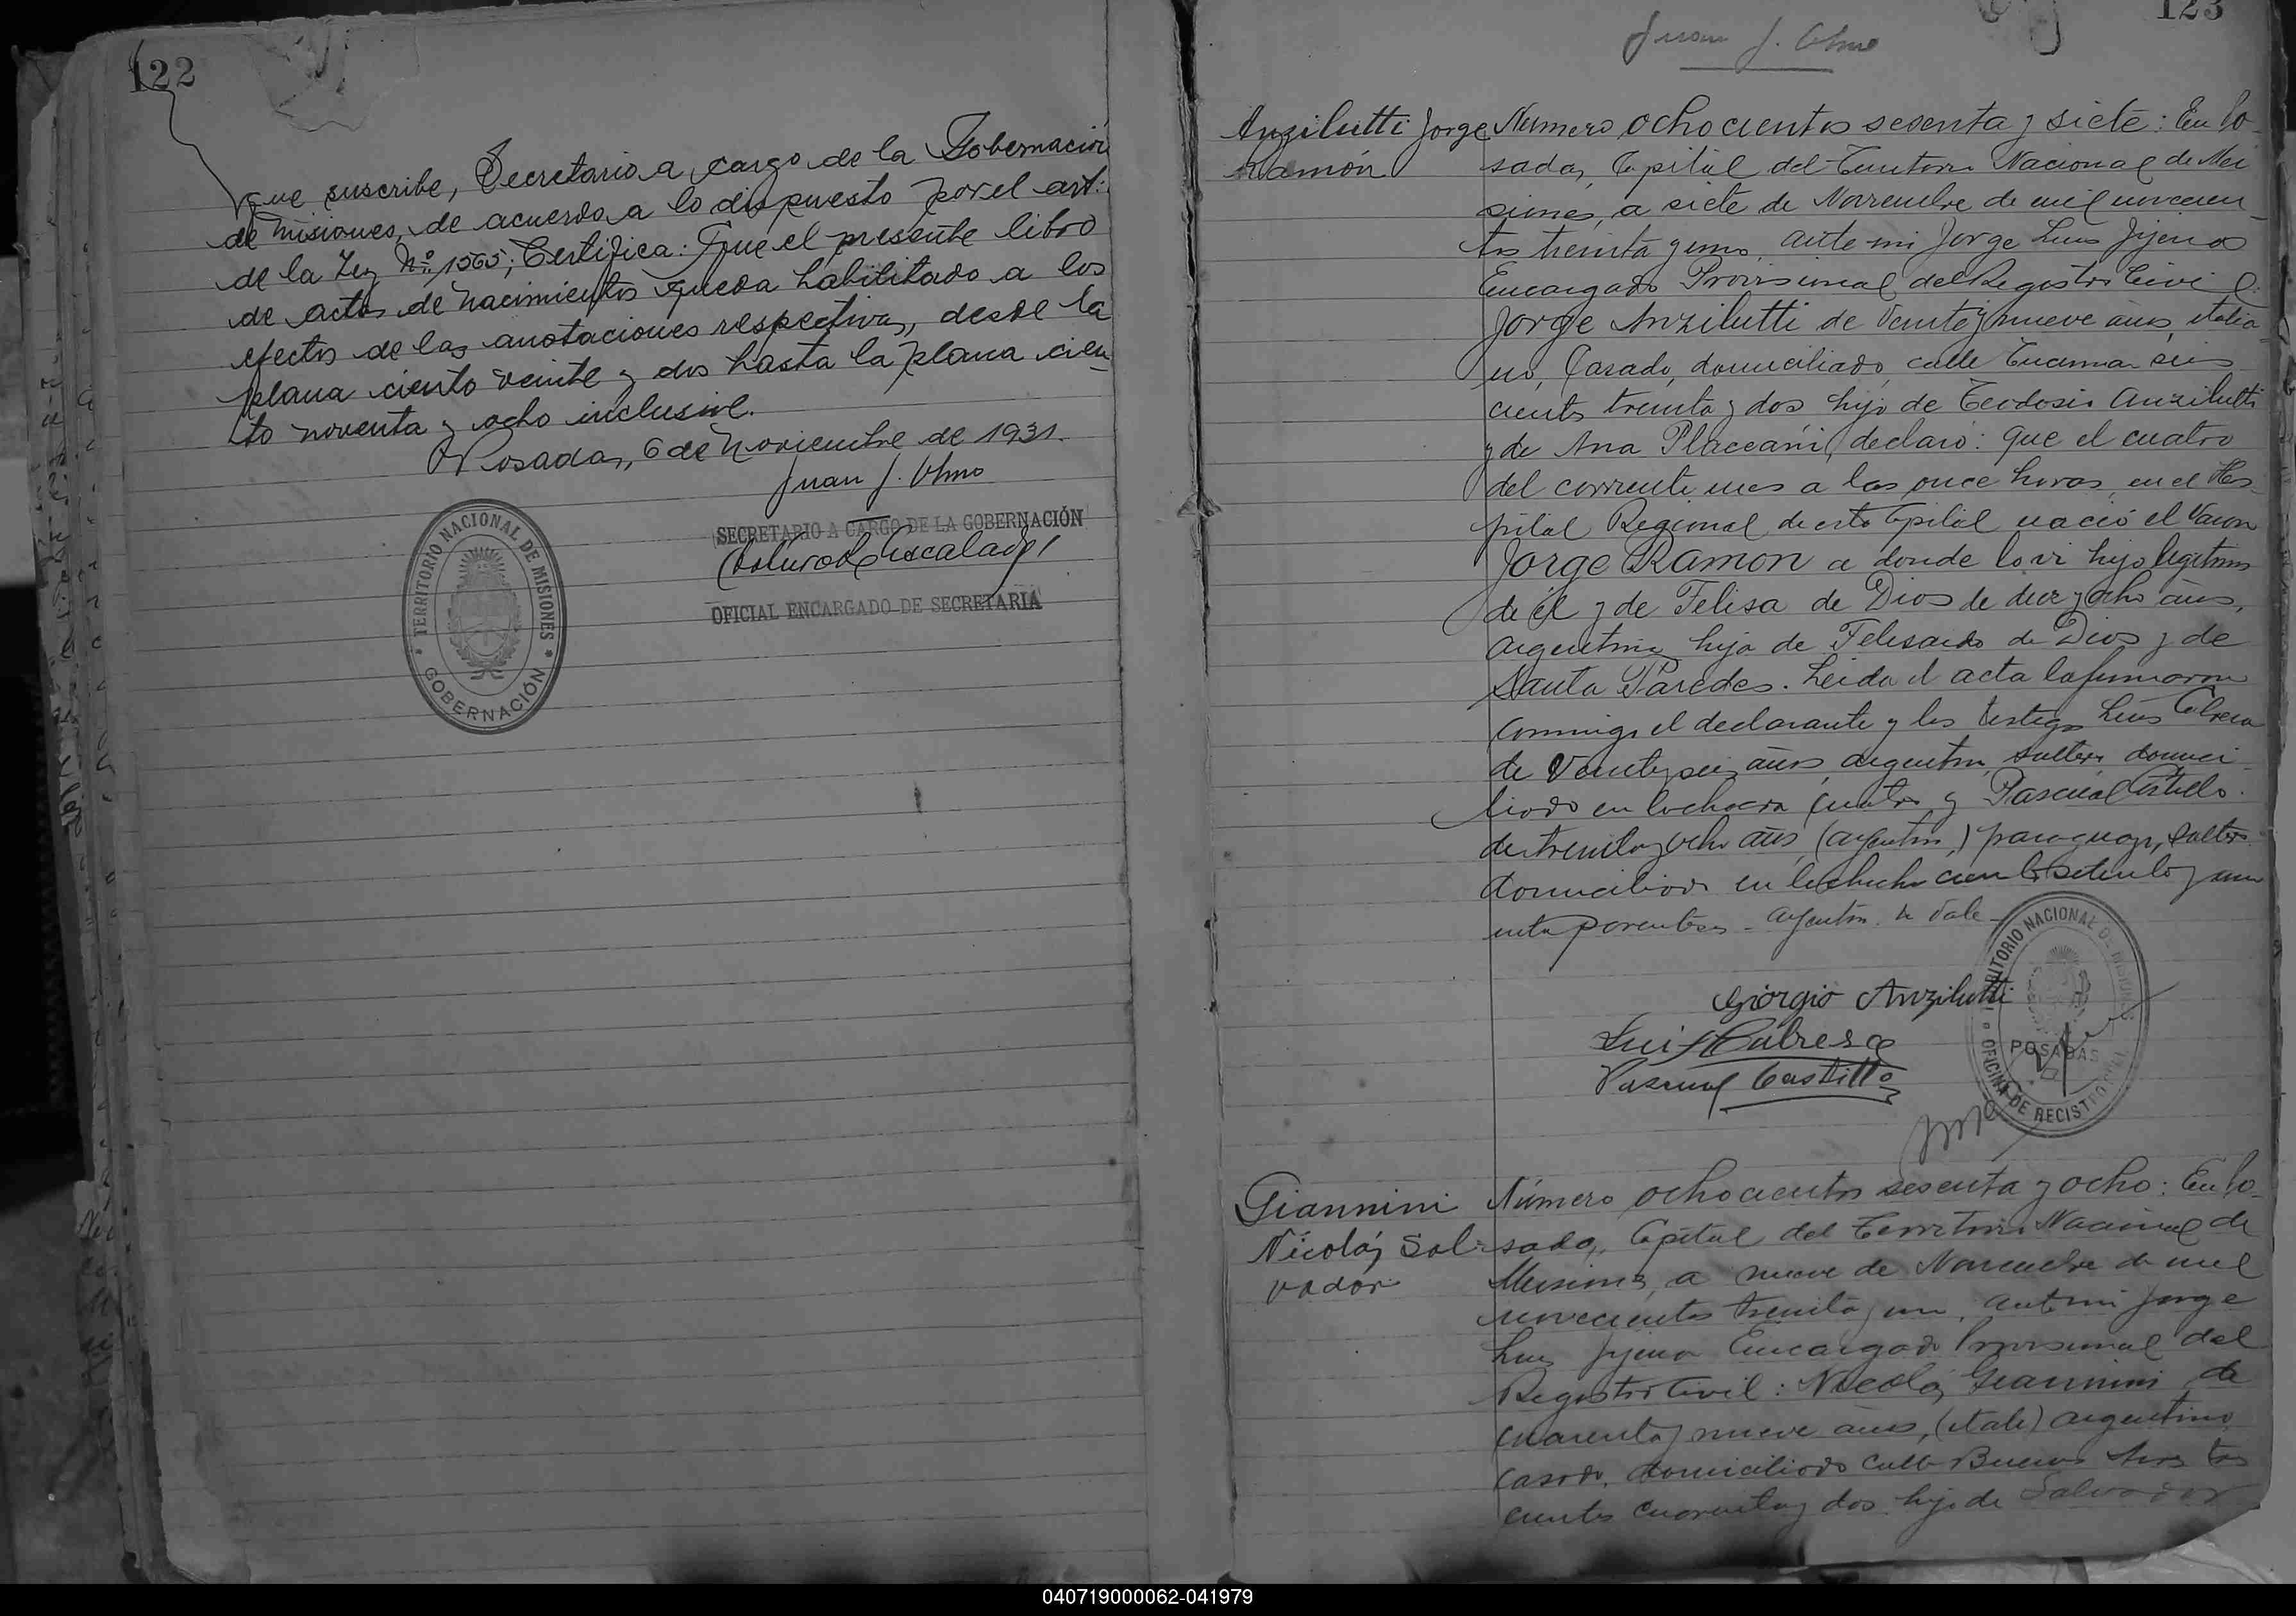 122
que suscribe, Secretario a cargo de la Gobernación
de Misiones, de acuerdo a lo dispuesto por el art:
de la Ley Nº 1565; Certifica: Que el presente libro
de actas de nacimientos queda habilitado a los
efectos de las anotaciones respectivas, desde la
plana ciento veinte y dos hasta la plana cien-
to noventa y ocho inclusive.
Posadas, 6 de Noviembre de 1931.
Juan J. Olmo
SECRETARIO A CARGO DE LA GOBERNACIÓN
OFICIAL ENCARGADO DE SECRETARIA
TERRITORIO NACIONAL DE MISIONES
GOBERNACIÓN
123
Juan J. Olmo
Anzilutti Jorge
Ramón
Número ochocientos sesenta y siete: En Po-
sadas, Capital del Territorio Nacional de Mi
siones, a siete de Noviembre de mil novecien-
tos treinta y uno, ante mi Jorge Luis Jijena
Encargado Provisional del Registro Civil:
Jorge Anzilutti de veinte y nueve años, italia-
no, casado, domiciliado, calle Tucuman seis
cientos treinta y dos hijo de Teodosio Anzilutti
y de Ana Placeani, declaró: Que el cuatro
del corriente mes a las once horas, en el Hos-
pital Regional de esta Capital nació el varon
Jorge Ramon a donde lo vi hijo legitimo
de él y de Felisa de Dios de diez y ocho años,
argentina hija de Felisardo de Dios y de
Santa Paredes. Leida el acta la firmaron
conmigo el declarante y los testigos Luis Cabrera
de veinte y seis años, argentino, soltero, domici-
liado en la chacra cuatro y Pascual Castillo
de treinta y ocho años, (argentino,) paraguayo, soltero
domiciliado en la chacra ciento setenta y uno
entre parentesis - argentino - no vale -
Giorgio Anzilutti
Luis Cabrera
Pascual Castillo
TERRITORIO NACIONAL DE MISIONES
POSADAS
OFICINA DE REGISTRO CIVIL
Giannini
Nicolás Sal-
vador
Número ochocientos sesenta y ocho: En Po-
sadas, Capital del Territorio Nacional de
Misiones, a nueve de Noviembre de mil
novecientos treinta y uno, ante mi Jorge
Luis Jijena Encargado Provisional del
Registro Civil: Nicolás Giannini de
cuarenta y nueve años, (itali) argentino
casado, domiciliado calle Buenos Aires tres
cientos cuarenta y dos hijo de Salvador
040719000062-041979